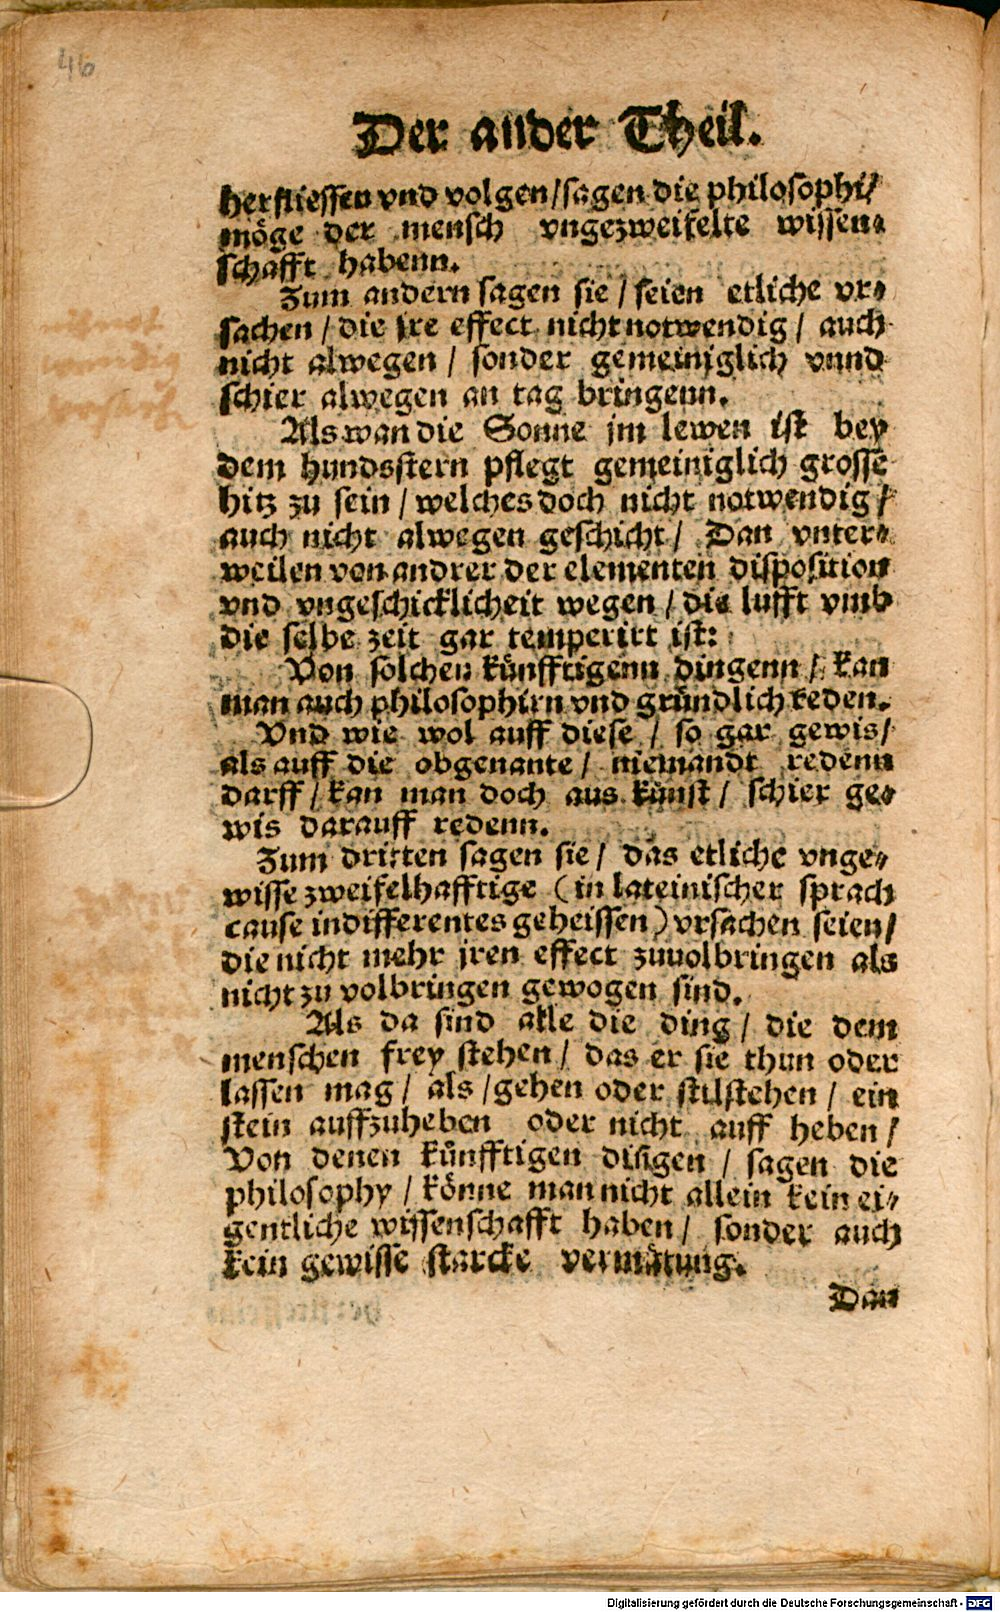 46
Der ander Theil.
herfliessen vnd volgen/sagen die philosophi/
möge der mensch vngezweifelte wissen-
schafft habenn.
Zum andern sagen sie / seien etliche vr-
sachen / die jre effect nicht notwendig / auch
nicht alwegen / sonder gemeiniglich vnnd
schier alwegen an tag bringenn.
Als wan die Sonne jm lewen ist bey
dem hundsstern pflegt gemeiniglich grosse
hitz zu sein / welches doch nicht notwendig /
auch nicht alwegen geschicht / Dan vnter-
weilen von andrer der elementen disposition
vnd vngeschicklicheit wegen / die lufft vmb
die selbe zeit gar temperirt ist:
Von solchen künfftigenn dingenn / kan
man auch philosophirn vnd gründlich reden.
Vnd wie wol auff diese / so gar gewis /
als auff die obgenante / niemandt redenn
darff / kan man doch aus kunst / schier ge-
wis darauff redenn.
Zum dritten sagen sie / das etliche vnge-
wisse zweifelhafftige (in lateinischer sprach
cause indifferentes geheissen) vrsachen seien /
die nicht mehr jren effect zuuolbringen als
nicht zu volbringen gewogen sind.
Als da sind alle die ding / die dem
menschen frey stehen / das er sie thun oder
lassen mag / als / gehen oder stilstehen / ein
stein auffzuheben oder nicht auff heben /
Von denen künfftigen dingen / sagen die
philosophy / könne man nicht allein kein ei-
gentliche wissenschafft haben / sonder auch
kein gewisse starcke vermütung.
Dan
Digitalisierung gefördert durch die Deutsche Forschungsgemeinschaft - DFG